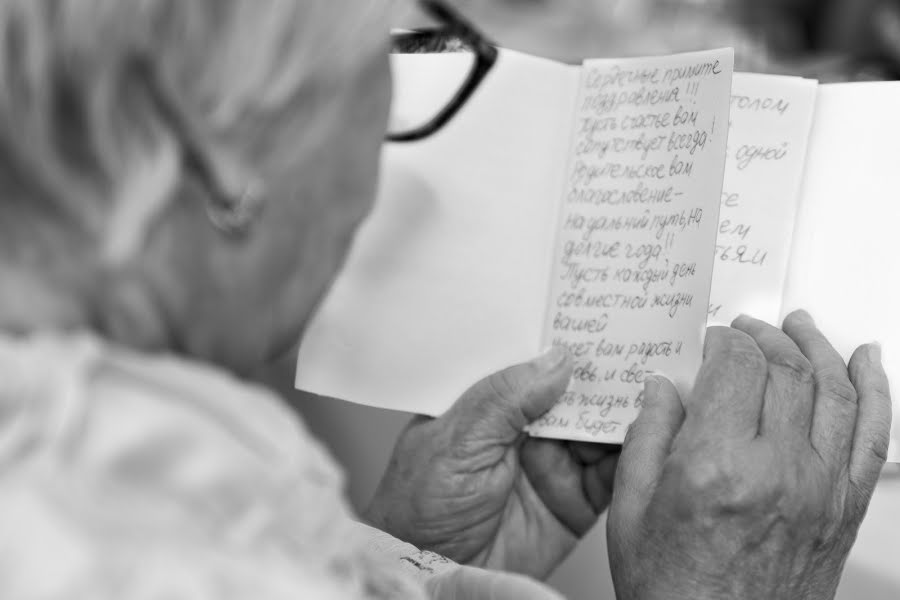 Сердечные примите
поздравления!!!
Пусть счастье вам
сопутствует всегда!
Родительское вам
благословение-
на дальний путь, на
долгие года!!
Пусть каждый день
совместной жизни
вашей
несет вам радость и
и свет
жизнь
вам будет
одной